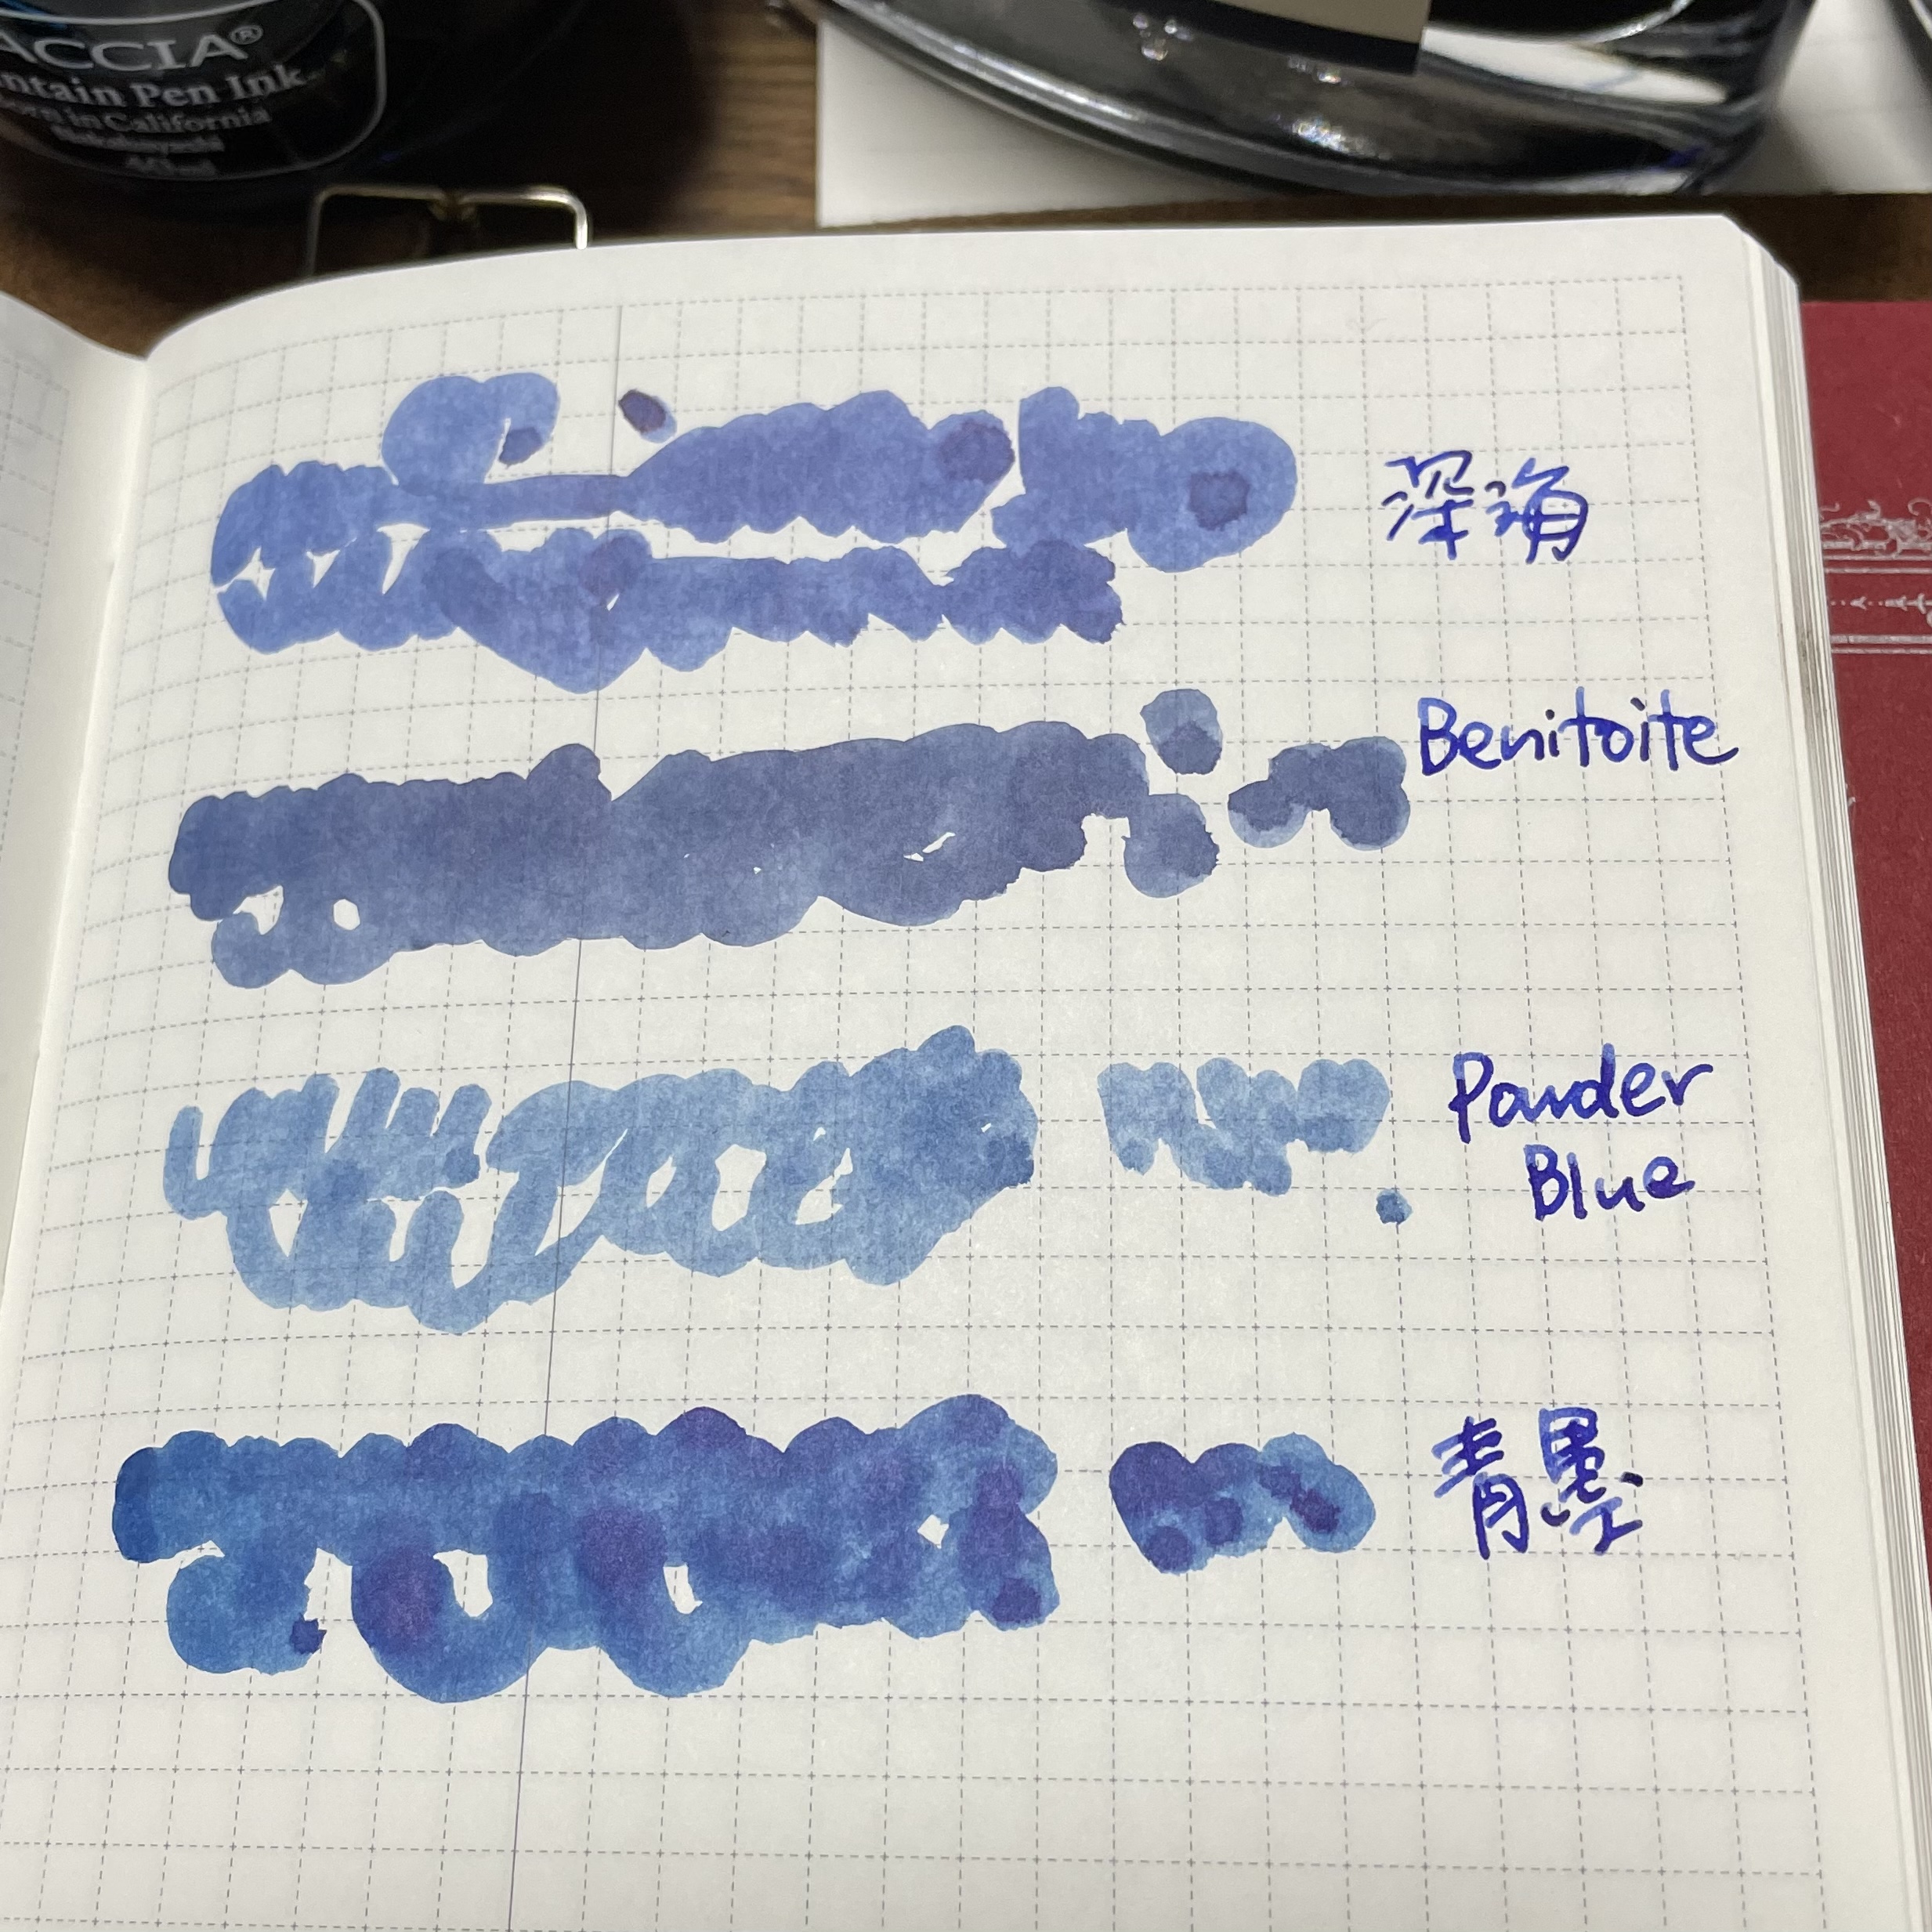 ACCIA®
ntain Pen Ink
rn in California
深海
Benitoite
Powder
Blue
青墨